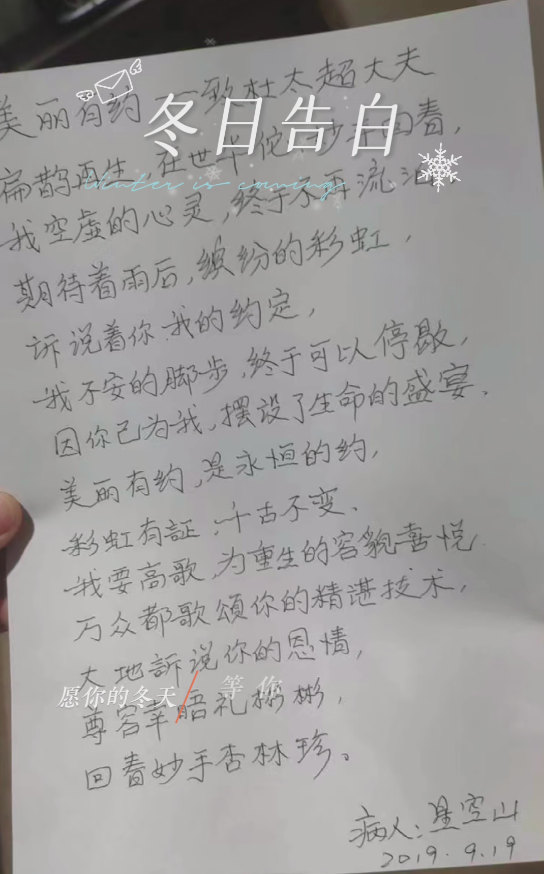 美丽有约——致杜太超大夫
冬日告白
扁鹊再生,在世华佗,妙手回春,
Winter is coming
我空虚的心灵,终于不再流泪
期待着雨后,缤纷的彩虹,
訴说着你我的约定,
我不安的脚步,终于可以停歇,
因你已为我,摆设了生命的盛宴.
美丽有约,是永恒的约,
彩虹有証,千古不变、
我要高歌,为重生的容貌喜悦
万众都歌頌你的精湛技术,
大地訴说你的恩情,
愿你的冬天/等你
尊容幸晤礼彬彬,
回春妙手杏林珍。
病人:星空山
2019.9.19